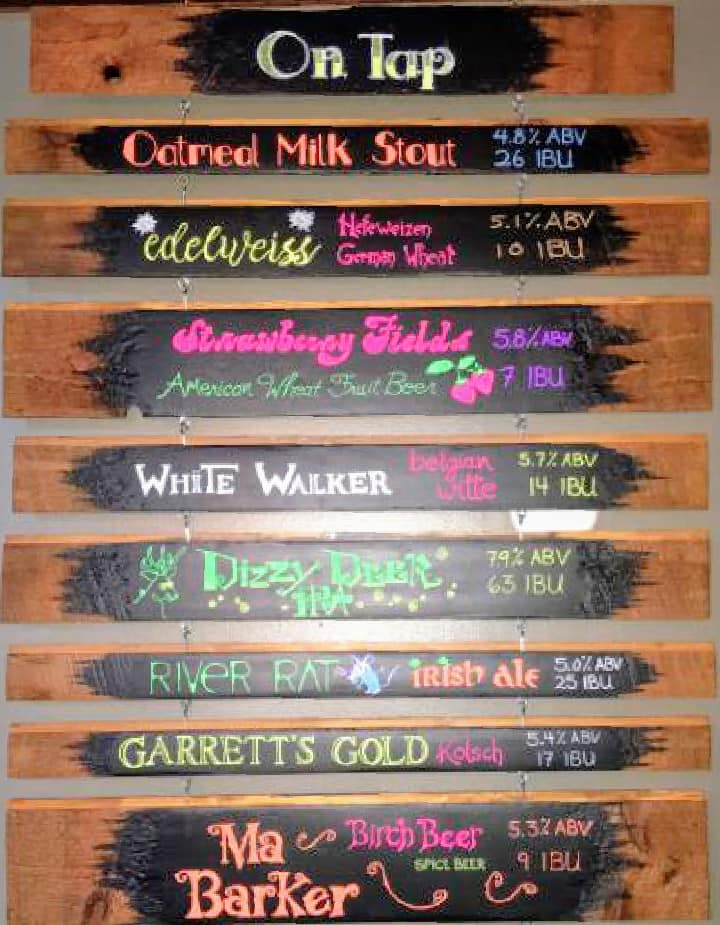 On Tap
Oatmeal Milk Stout 4.8% ABV
26 IBU
edelweiss Hefeweizen 5.1% ABV
German Wheat 10 IBU
Strawberry Fields 5.8% ABV
American Wheat Fruit Beer 7 IBU
WHiTE WALKER belgian 5.7% ABV
witte 14 IBU
Dizzy DEER 7.9% ABV
IPA 63 IBU
RIVER RAT iRisb ale 5.0% ABV
25 IBU
GARRETT'S GOLD Kolsch 5.4% ABV
17 IBU
Ma Birch Beer 5.3% ABV
SPICE BEER 9 IBU
BarKer